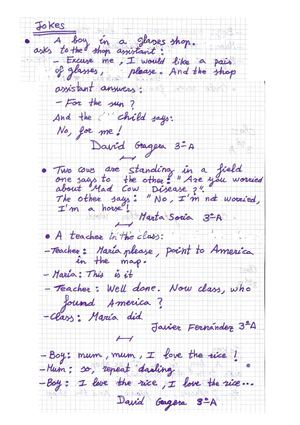 Jokes
• A boy in a glasses shop.
asks to the shop assistant:
- Excuse me, I would like a pair
of glasses, please. And the shop
assistant answers:
- For the sun?
And the child says:
No, for me!
David Gragera 3ºA
• Two cows are standing in a field
one says to the other: "Are you worried
about "Mad Cow Disease?".
The other says: "No, I'm not worried,
I'm a horse!
Marta Soria 3ºA
• A teacher in the class:
- Teacher: María please, point to America
in the map.
- María: This is it
- Teacher: Well done. Now class, who
found America?
- Class: María did
Javier Fernández 3ºA
- Boy: mum, mum, I love the rice!
- Mum: so, repeat darling
- Boy: I love the rice, I love the rice...
David Gragera 3ºA